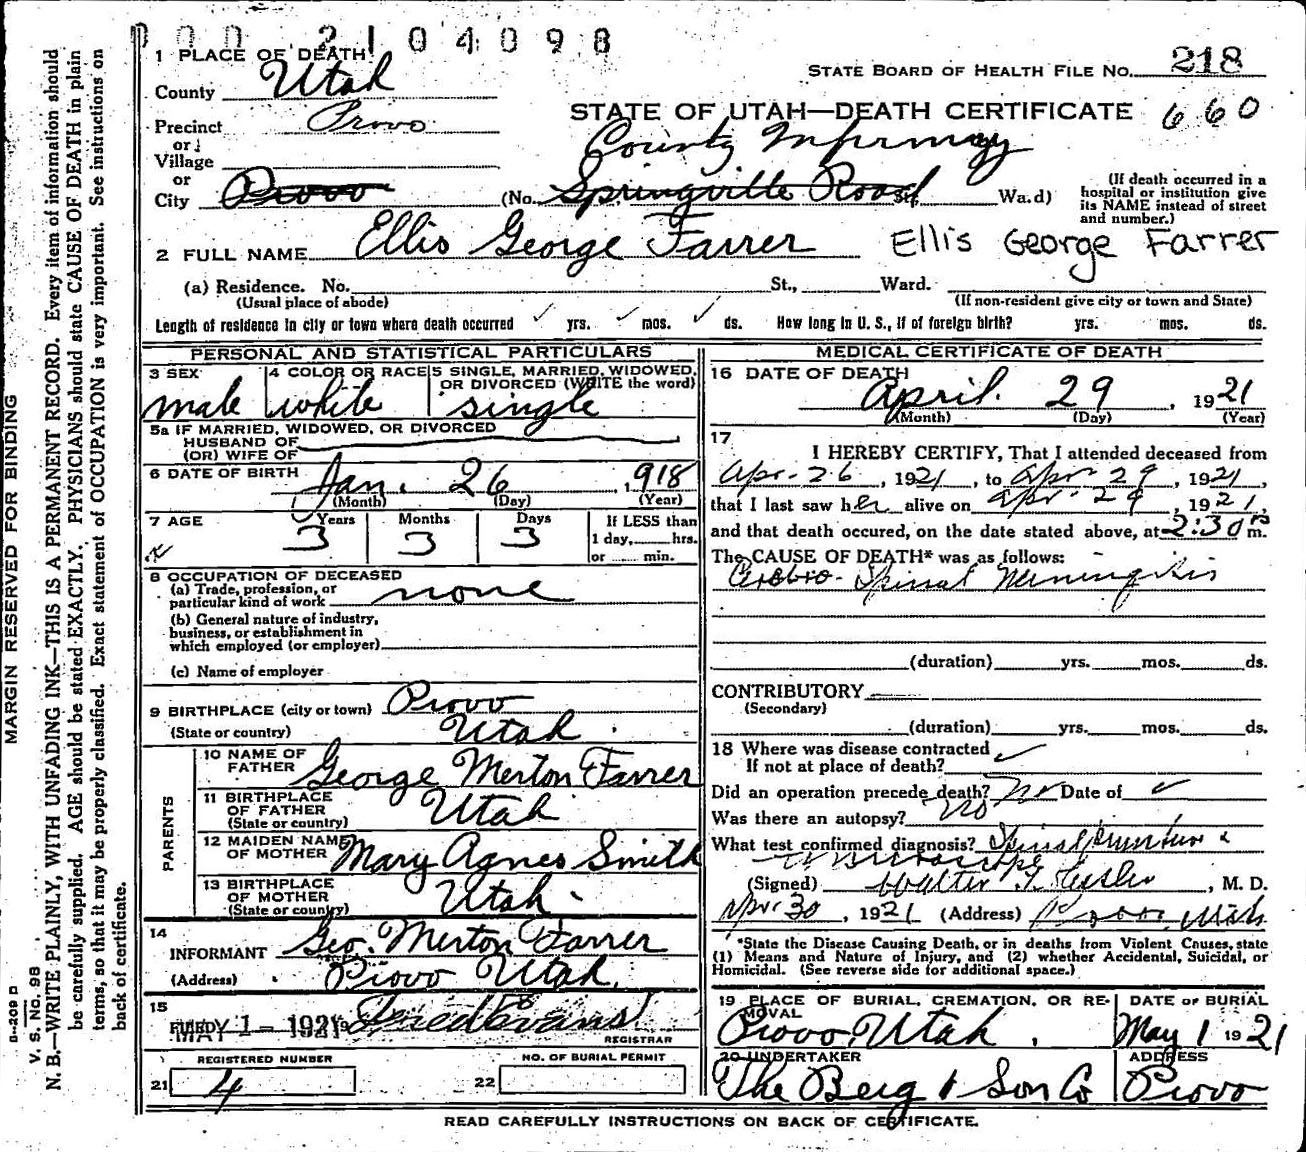 000 2104098
1 PLACE OF DEATH
County Utah
STATE BOARD OF HEALTH FILE NO. 218
STATE OF UTAH—DEATH CERTIFICATE 660
Precinct Provo
or
Village
or
County Infirmary
City Provo (No. Springville Road St. Wa.d)
(If death occurred in a hospital or institution give its NAME instead of street and number.)
2 FULL NAME Ellis George Farrer Ellis George Farrer
(a) Residence. No. St., Ward.
(Usual place of abode) (If non-resident give city or town and State)
Length of residence in city or town where death occurred yrs. mos. ds. How long in U. S., if of foreign birth? yrs. mos. ds.
PERSONAL AND STATISTICAL PARTICULARS
3 SEX 4 COLOR OR RACE 5 SINGLE, MARRIED, WIDOWED,
OR DIVORCED (WRITE the word)
male white single
5a IF MARRIED, WIDOWED, OR DIVORCED
HUSBAND OF
(OR) WIFE OF
6 DATE OF BIRTH Jan. 26, 1918
(Month) (Day) (Year)
7 AGE Years Months Days If LESS than
3 3 3 1 day, hrs.
or min.
8 OCCUPATION OF DECEASED
(a) Trade, profession, or
particular kind of work none
(b) General nature of industry,
business, or establishment in
which employed (or employer)
(c) Name of employer
9 BIRTHPLACE (city or town) Provo
(State or country) Utah
PARENTS
10 NAME OF
FATHER George Merton Farrer
11 BIRTHPLACE
OF FATHER
(State or country) Utah
12 MAIDEN NAME
OF MOTHER Mary Agnes Smith
13 BIRTHPLACE
OF MOTHER
(State or country) Utah
14
INFORMANT Geo. Merton Farrer
(Address) Provo Utah.
15
FILED MAY 1 - 1921 Fred Evans
REGISTRAR
REGISTERED NUMBER NO. OF BURIAL PERMIT
21 4 22
MEDICAL CERTIFICATE OF DEATH
16 DATE OF DEATH
April 29, 1921
(Month) (Day) (Year)
17
I HEREBY CERTIFY, That I attended deceased from
Apr-26, 1921, to Apr 29, 1921,
that I last saw her alive on Apr-29, 1921,
and that death occured, on the date stated above, at 2:30 m.
The CAUSE OF DEATH* was as follows:
Cerebro-Spinal Meningitis
(duration) yrs. mos. ds.
CONTRIBUTORY
(Secondary)
(duration) yrs. mos. ds.
18 Where was disease contracted
If not at place of death?
Did an operation precede death? No Date of
Was there an autopsy? No
What test confirmed diagnosis? Spinal puncture &
microscope
(Signed) Walter T. , M. D.
Apr 30, 1921 (Address) Provo, Utah
*State the Disease Causing Death, or in deaths from Violent Causes, state
(1) Means and Nature of Injury, and (2) whether Accidental, Suicidal, or
Homicidal. (See reverse side for additional space.)
19 PLACE OF BURIAL, CREMATION, OR RE- DATE OF BURIAL
MOVAL
Provo, Utah. May 1 1921
20 UNDERTAKER ADDRESS
The Berg & Son Co Provo
READ CAREFULLY INSTRUCTIONS ON BACK OF CERTIFICATE.
MARGIN RESERVED FOR BINDING
B-209 D
V. S. No. 98
N. B.—WRITE PLAINLY, WITH UNFADING INK—THIS IS A PERMANENT RECORD. Every item of information should
be carefully supplied. AGE should be stated EXACTLY. PHYSICIANS should state CAUSE OF DEATH in plain
terms, so that it may be properly classified. Exact statement of OCCUPATION is very important. See instructions on
back of certificate.